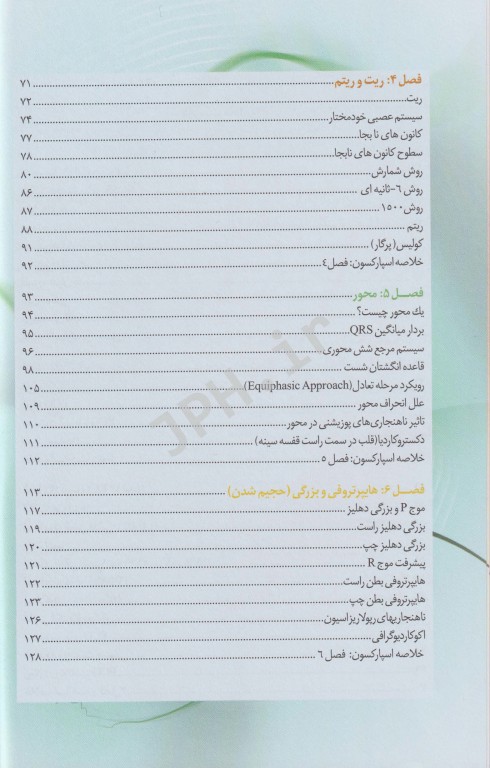 فصل ۴: ریت و ریتم ........ ۷۱
ریت ........ ۷۲
سیستم عصبی خودمختار ........ ۷۴
کانون های نابجا ........ ۷۷
سطوح کانون های نابجا ........ ۷۸
روش شمارش ........ ۸۰
روش ٦-ثانیه ای ........ ۸۶
روش ۱۵۰۰ ........ ۸۷
ریتم ........ ۸۸
کولیس( پرگار) ........ ۹۱
خلاصه اسپارکسون: فصل ٤ ........ ۹۲
فصــل ۵: محور ........ ۹۳
یك محور چیست؟ ........ ۹۴
بردار میانگین QRS ........ ۹۵
سیستم مرجع شش محوری ........ ۹۶
قاعده انگشتان شست ........ ۹۸
رویکرد مرحله تعادل(Equiphasic Approach) ........ ۱۰۵
علل انحراف محور ........ ۱۰۹
تاثیر ناهنجاری‌های پوزیشنی در محور ........ ۱۱۰
دکستروکاردیا(قلب در سمت راست قفسه سینه) ........ ۱۱۱
خلاصه اسپارکسون: فصل ٥ ........ ۱۱۲
فصــل ۶: هایپرتروفی و بزرگی (حجیم شدن) ........ ۱۱۳
موج P و بزرگی دهلیز ........ ۱۱۷
بزرگی دهلیز راست ........ ۱۱۹
بزرگی دهلیز چپ ........ ۱۲۰
پیشرفت موج R ........ ۱۲۱
هایپرتروفی بطن راست ........ ۱۲۲
هایپرتروفی بطن چپ ........ ۱۲۳
ناهنجاریهای رپولاریزاسیون ........ ۱۲۶
اکوکاردیوگرافی ........ ۱۲۷
خلاصه اسپارکسون: فصل ٦ ........ ۱۲۸
JPH.ir